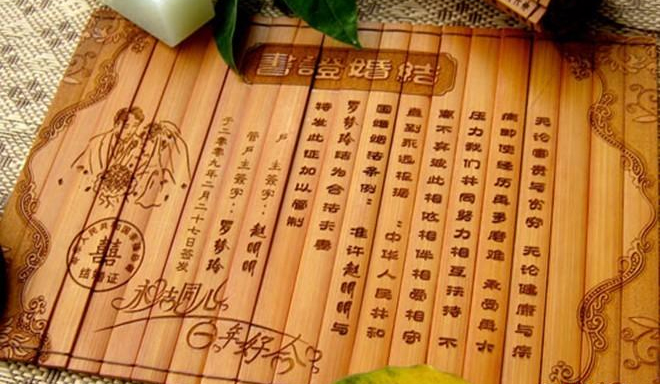 結婚證書
无论富贵与贫穷 无论健康与疾
病即使经历再多磨难 承受再大
压力我们共同努力相互扶持 不
离不弃彼此相依相伴相爱相守
直到永远根据 :中华人民共和
国婚姻法条例:准许赵明明与
罗梦玲结为合法夫妻
特发此证加以管制
户 主签字:赵明明
管户主签字:罗梦玲
于二零零九年二月二十七日签发
囍
结婚证
永结同心
百年好合